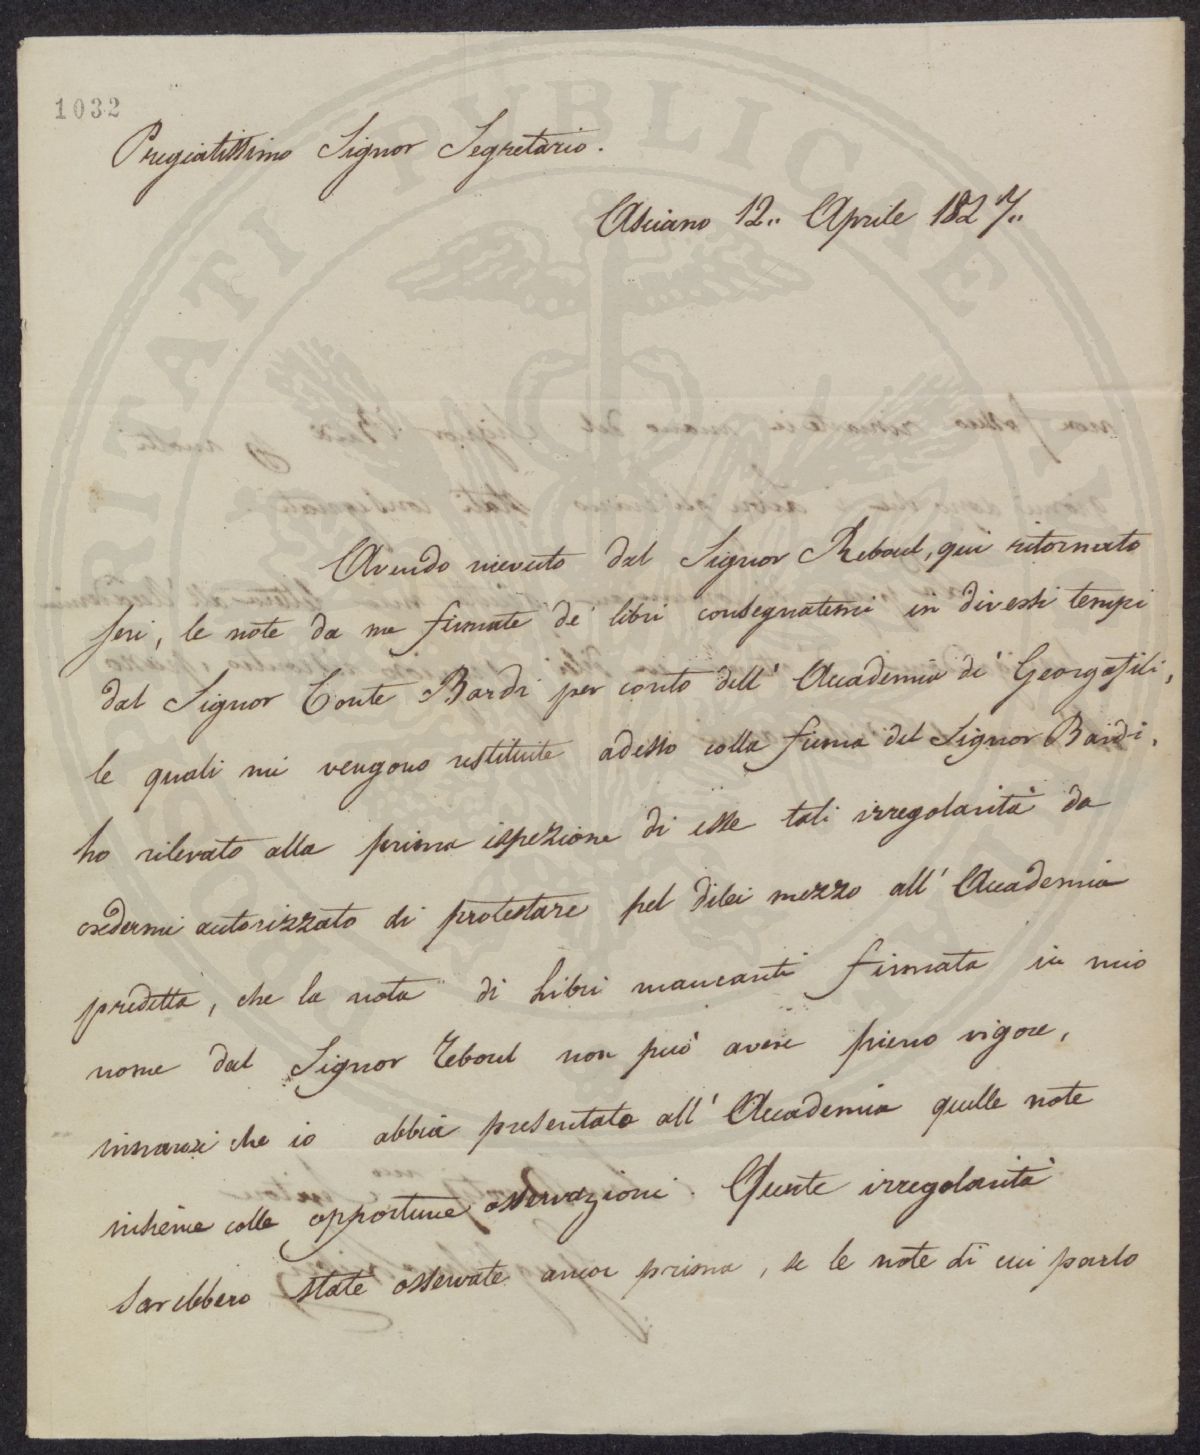 1032
Pregiatissimo Signor Segretario.
Asciano 12.. Aprile 1827..
Avendo ricevuto dal Signor Reboul, qui ritornato
Jeri, le note da me firmate de' libri consegnatemi in diversi tempi
dal Signor Conte Bardi per conto dell' Accademia de' Georgofili,
le quali mi vengono restituite adesso colla firma del Signor Bardi,
ho rilevato alla prima ispezione di esse tali irregolarità da
credermi autorizzato di protestare pel dilei mezzo all' Accademia
predetta, che la nota di Libri mancanti firmata in mio
nome dal Signor Reboul non può avere pieno vigore,
innanzi che io abbia presentato all' Accademia quelle note
insieme colle opportune osservazioni. Queste irregolarità
sarebbero state osservate ancor prima, se le note di cui parlo